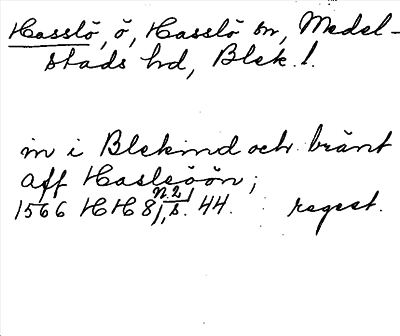 Hasslö, ö, Hasslö sn, Medel-
stads hd, Blek. l.
in i Blekind och bränt
aff Haslsöön;
1566 HH 8, n. 2, s. 44. regest.